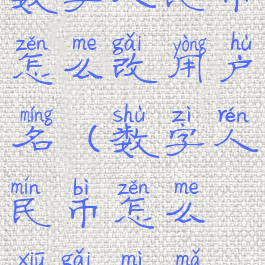 数字人民币
zěn me gǎi yòng hù
怎么改用户
míng shù zì rén
名（数字人
mín bì zěn me
民币怎么
xiū gǎi mì mǎ